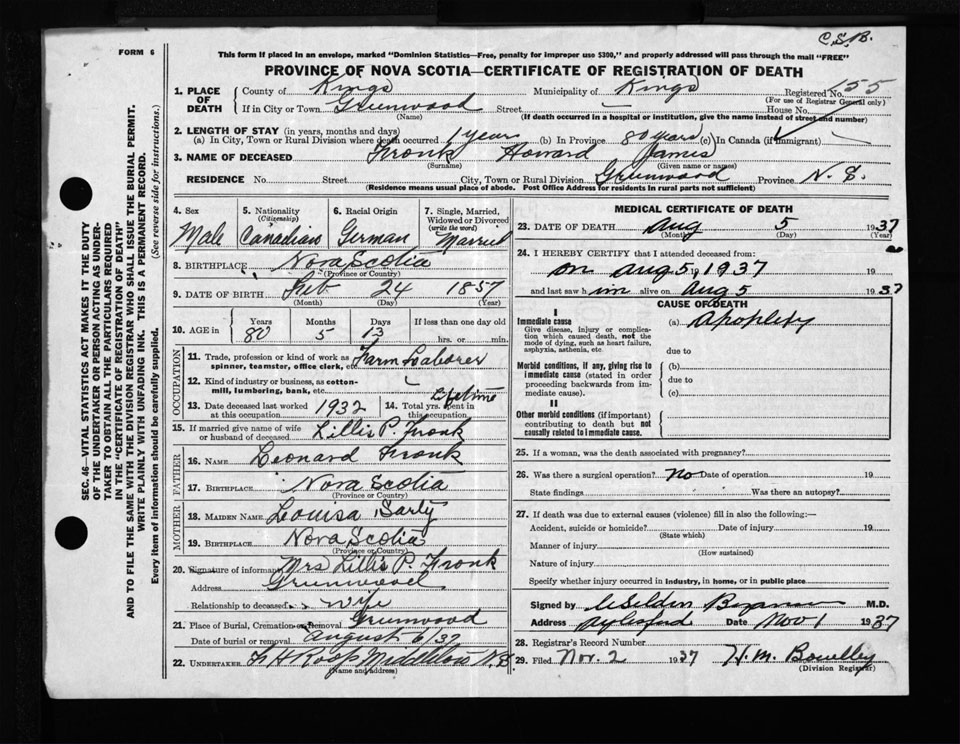 C.S.B.
FORM 6
This form if placed in an envelope, marked "Dominion Statistics—Free, penalty for improper use $300," and properly addressed will pass through the mail "FREE"
PROVINCE OF NOVA SCOTIA—CERTIFICATE OF REGISTRATION OF DEATH
1. PLACE OF DEATH County of Kings Municipality of Kings Registered No. 155
(For use of Registrar General only)
If in City or Town Greenwood Street — House No.
(Name) (If death occurred in a hospital or institution, give the name instead of street and number)
2. LENGTH OF STAY (in years, months and days)
(a) In City, Town or Rural Division where death occurred 1 year (b) In Province 80 years (c) In Canada (if immigrant)
3. NAME OF DECEASED Fronk Howard James
(Surname) (Given name or names)
RESIDENCE No. Street City, Town or Rural Division Greenwood Province N.S.
(Residence means usual place of abode. Post Office Address for residents in rural parts not sufficient)
4. Sex Male
5. Nationality (Citizenship) Canadian
6. Racial Origin German
7. Single, Married, Widowed or Divorced (write the word) Married
8. BIRTHPLACE Nova Scotia
(Province or Country)
9. DATE OF BIRTH Feb 24 1857
(Month) (Day) (Year)
10. AGE in Years 80 Months 5 Days 13 If less than one day old hrs. or min.
OCCUPATION
11. Trade, profession or kind of work as spinner, teamster, office clerk, etc. Farm Laborer
12. Kind of industry or business, as cotton-mill, lumbering, bank, etc.
13. Date deceased last worked at this occupation 1932
14. Total yrs. spent in this occupation Lifetime
15. If married give name of wife or husband of deceased Lillis P. Fronk
FATHER
16. NAME Leonard Fronk
17. BIRTHPLACE Nova Scotia
(Province or Country)
MOTHER
18. MAIDEN NAME Louisa Sarty
19. BIRTHPLACE Nova Scotia
(Province or Country)
20. Signature of informant Mrs Lillis P. Fronk
Address Greenwood
Relationship to deceased wife
21. Place of Burial, Cremation or Removal Greenwood
Date of burial or removal August 6/37
22. UNDERTAKER F H Roop Middleton N.S.
(Name and address)
MEDICAL CERTIFICATE OF DEATH
23. DATE OF DEATH Aug 5 1937
(Month) (Day) (Year)
24. I HEREBY CERTIFY that I attended deceased from:
on Aug 5, 1937 19
and last saw him alive on Aug 5 1937
CAUSE OF DEATH
I
Immediate cause (a) Apoplexy
Give disease, injury or complication which caused death, not the mode of dying, such as heart failure, asphyxia, asthenia, etc. due to
Morbid conditions, if any, giving rise to immediate cause (stated in order proceeding backwards from immediate cause). (b)
due to
(c)
II
Other morbid conditions (if important) contributing to death but not causally related to immediate cause.
25. If a woman, was the death associated with pregnancy?
26. Was there a surgical operation? No Date of operation 19
State findings Was there an autopsy?
27. If death was due to external causes (violence) fill in also the following:—
Accident, suicide or homicide? Date of injury 19
(State which)
Manner of injury
(How sustained)
Nature of injury
Specify whether injury occurred in industry, in home, or in public place
Signed by M.D.
Address Aylesford Date Nov 1 1937
28. Registrar's Record Number
29. Filed Nov. 2 1937 H. M.
(Division Registrar)
SEC. 46—VITAL STATISTICS ACT MAKES IT THE DUTY
OF THE UNDERTAKER OR PERSON ACTING AS UNDER-
TAKER TO OBTAIN ALL THE PARTICULARS REQUIRED
IN THE "CERTIFICATE OF REGISTRATION OF DEATH"
AND TO FILE THE SAME WITH THE DIVISION REGISTRAR WHO SHALL ISSUE THE BURIAL PERMIT.
WRITE PLAINLY WITH UNFADING INK. THIS IS A PERMANENT RECORD.
Every item of information should be carefully supplied. (See reverse side for instructions.)